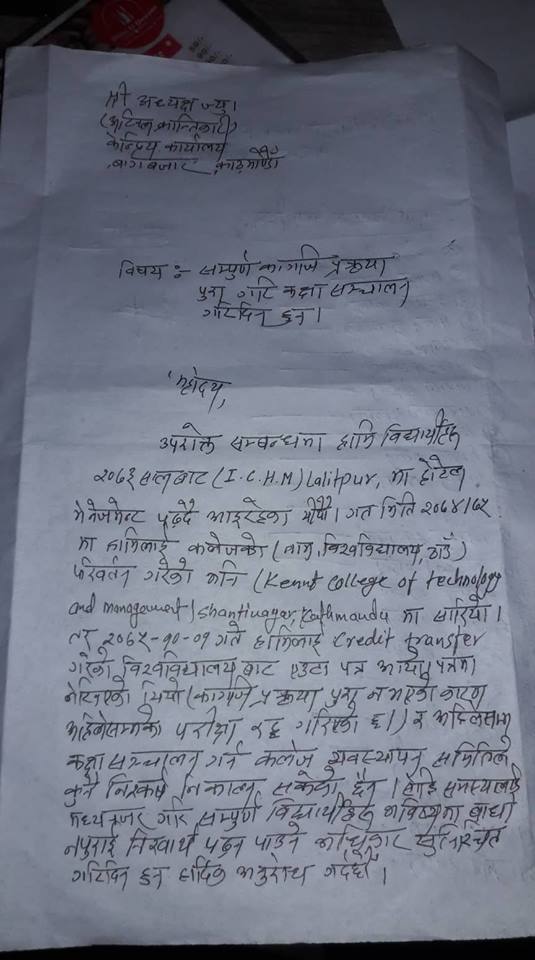 श्री अध्यक्ष ज्यु।
(अखिल क्रान्तिकारी)
केन्द्रिय कार्यालय
बागबजार, काठमाण्डौ
विषय :- सम्पुर्ण कागजि प्रक्रृया
पुरा गरि कक्षा सन्चालन
गरिदिन हुन।
महोदय,
उपरोक्त सम्बन्धमा हामि विद्यार्थीहरु
२०७३ सालबाट (I.C.H.M) Lalitpur, मा होटेल
मेनेजमेन्ट पढ्दै आइरहेका थीयौ। गत मिति २०७४/७५
मा हामिलाई कलेजको (नाम, विश्वविद्यालय, ठाउँ)
परिवर्तन गरेको भनि (Kennt College of technology
and management) Shantinagar, Kathmandu मा सारियो।
तर २०७५-१०-०१ गते हामिलाई Credit transfer
गरेको विश्वविद्यालय बाट एउटा पत्र आयो। पत्रमा
लेखिएको थियो (कागजि प्रक्रृया पुरा नभएको कारण
अहिलेसम्मको परीक्षा रद्द गरिएको छ।) र अहिलेसम्म
कक्षा सन्चालन गर्न कलेज व्यवस्थापन समितिले
कुनै निस्कर्ष निकाल्न सकेको छैन। सोहि समस्यालाई
मध्यनजर गरि सम्पुर्ण विद्यार्थीहरु भविष्यमा बाधा
नपुराई निस्वार्थ पढ्न पाउने अधिकार सुनिश्चित
गरिदिन हुन हार्दिक अनुरोध गर्दछौं।